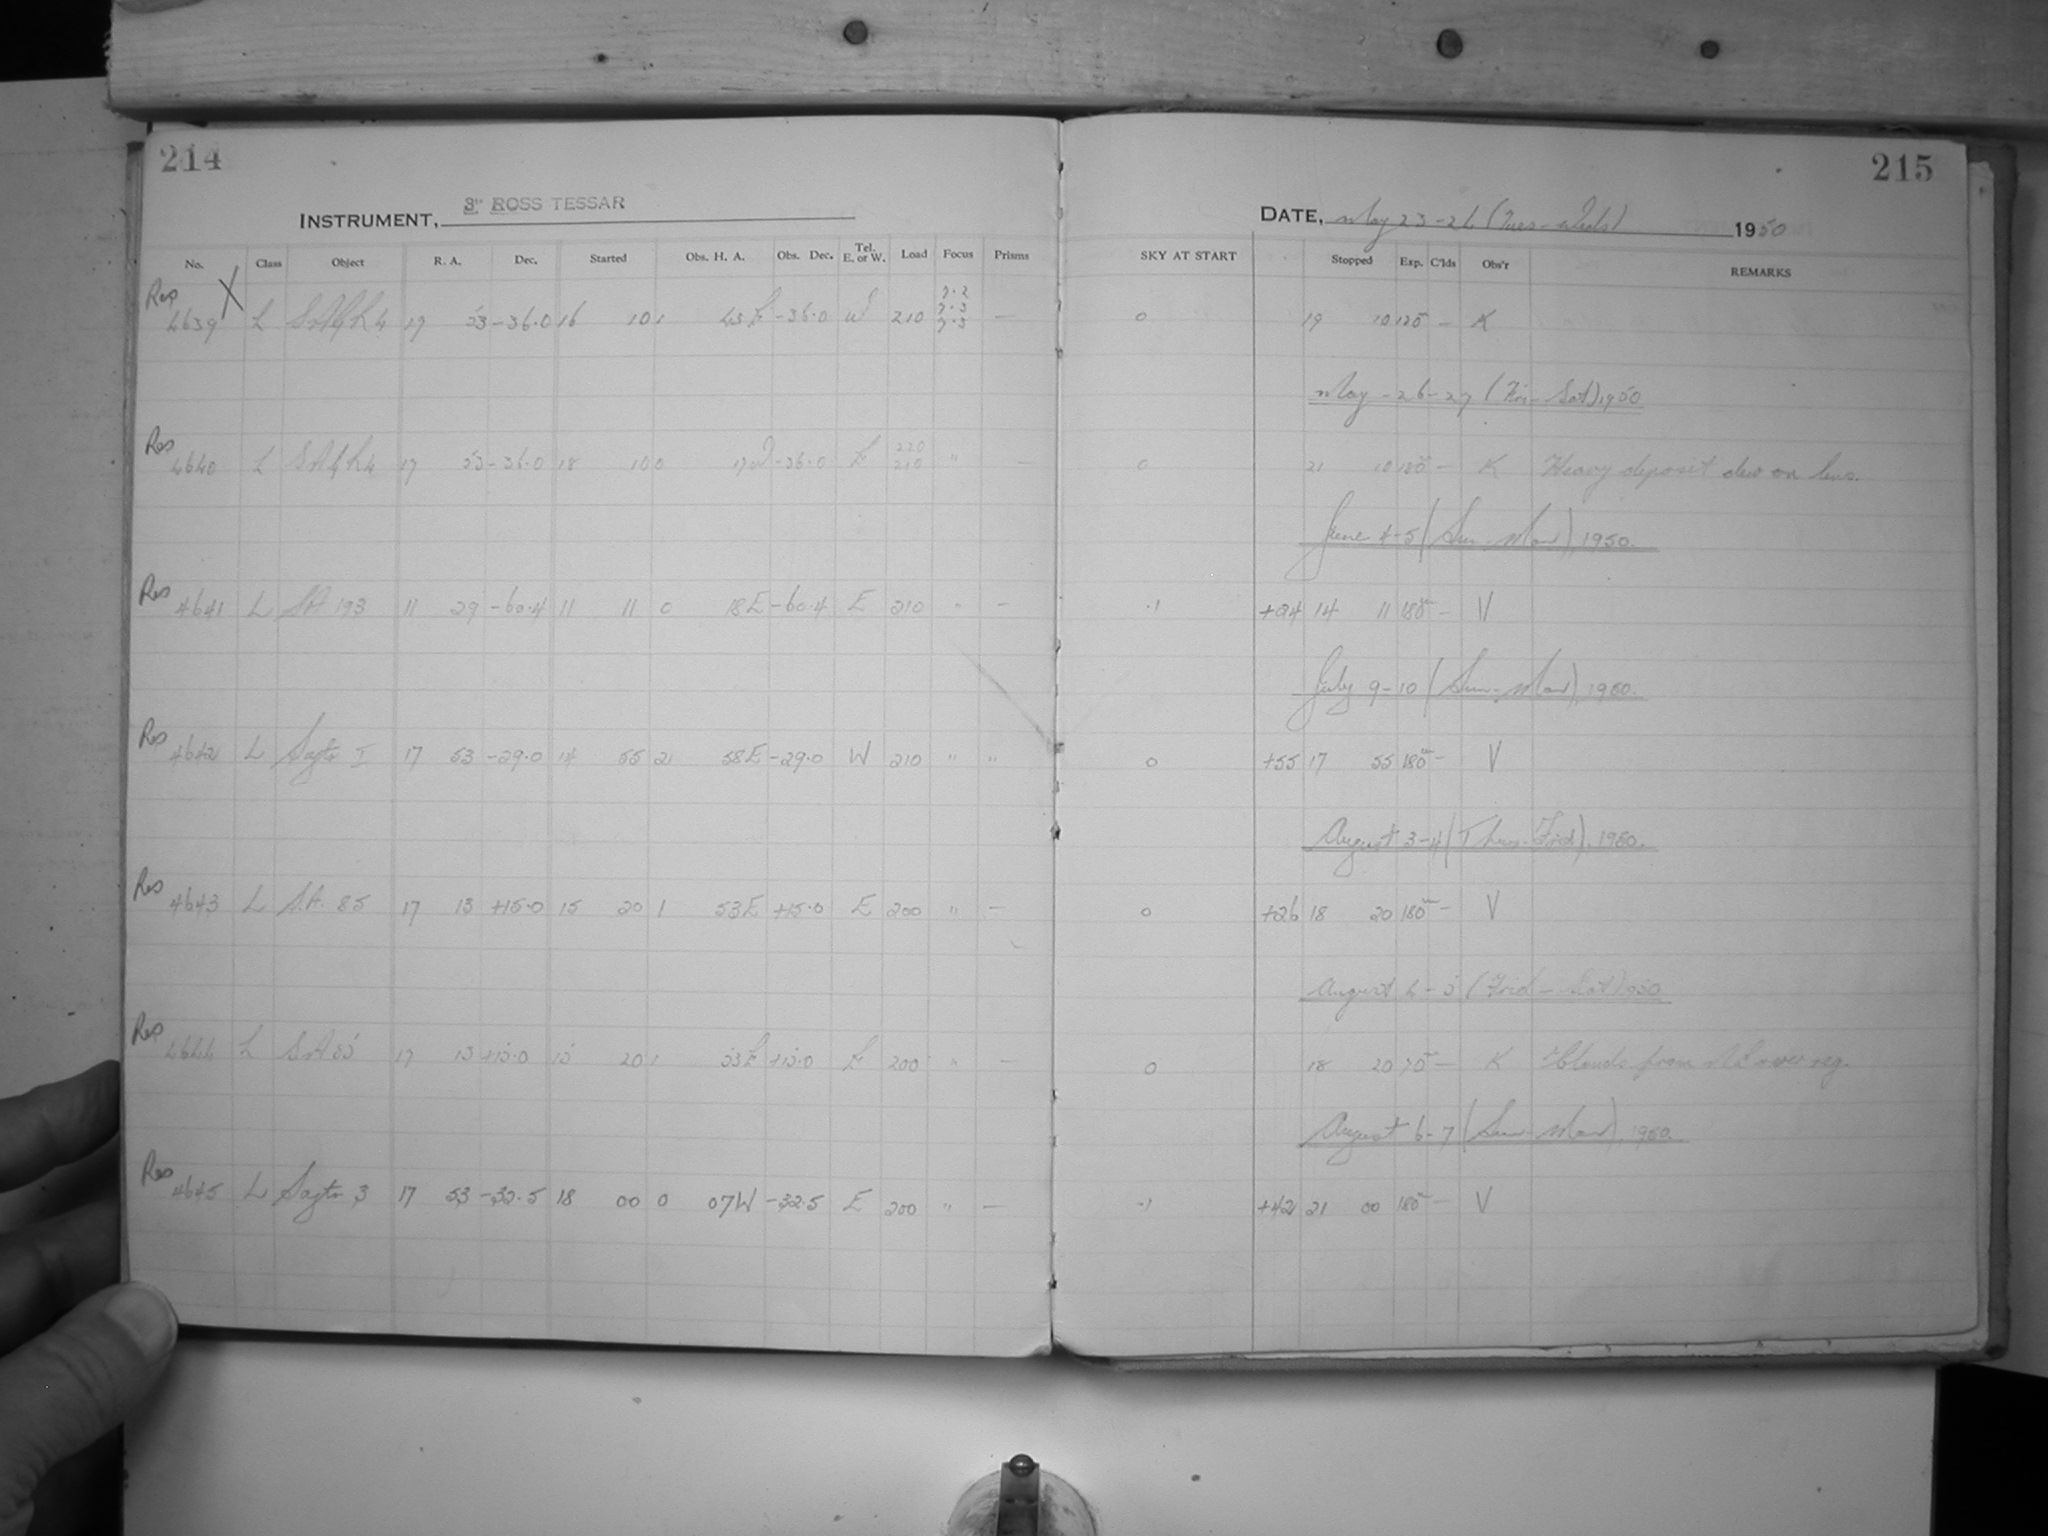 214
INSTRUMENT, 3" ROSS TESSAR
No. Class Object R. A. Dec. Started Obs. H. A. Obs. Dec. Tel. E. or W. Load Focus Prisms
Res X 4639 L 17 53 -36.0 16 10 1 43E -36.0 W 210 7.2 7.3 7.3 —
Res 4640 L 17 53 -36.0 18 10 0 17W -36.0 E 220 210 " —
Res 4641 L SA 193 11 29 -60.4 11 11 0 18E -60.4 E 210 " —
Res 4642 L Sagtr I 17 53 -29.0 14 55 21 58E -29.0 W 210 " "
Res 4643 L S.A. 85 17 13 +15.0 15 20 1 53E +15.0 E 200 " —
Res 4644 L SA 85 17 13 +15.0 15 20 1 53E +15.0 E 200 " —
Res 4645 L Sagtr 3 17 53 -32.5 18 00 0 07W -32.5 E 200 " —
215
DATE, May 23-24 (Tues-Weds) 1950
SKY AT START Stopped Exp. C'lds Obs'r REMARKS
0 19 10 — K
May -26-27 (Fri-Sat) 1950
0 21 10 180m — K Heavy deposit dew on lens.
June 4-5 (Sun-Mon), 1950.
.1 +24 14 11 180m — V
July 9-10 (Sun-Mon), 1950.
0 +55 17 55 180m — V
August 3-4 (Thurs-Frid), 1950.
0 +26 18 20 180m — V
August 4-5 (Frid-Sat) 1950
0 18 20 — K from over reg.
August 6-7 (Sun-Mon), 1950.
.1 +42 21 00 180m — V